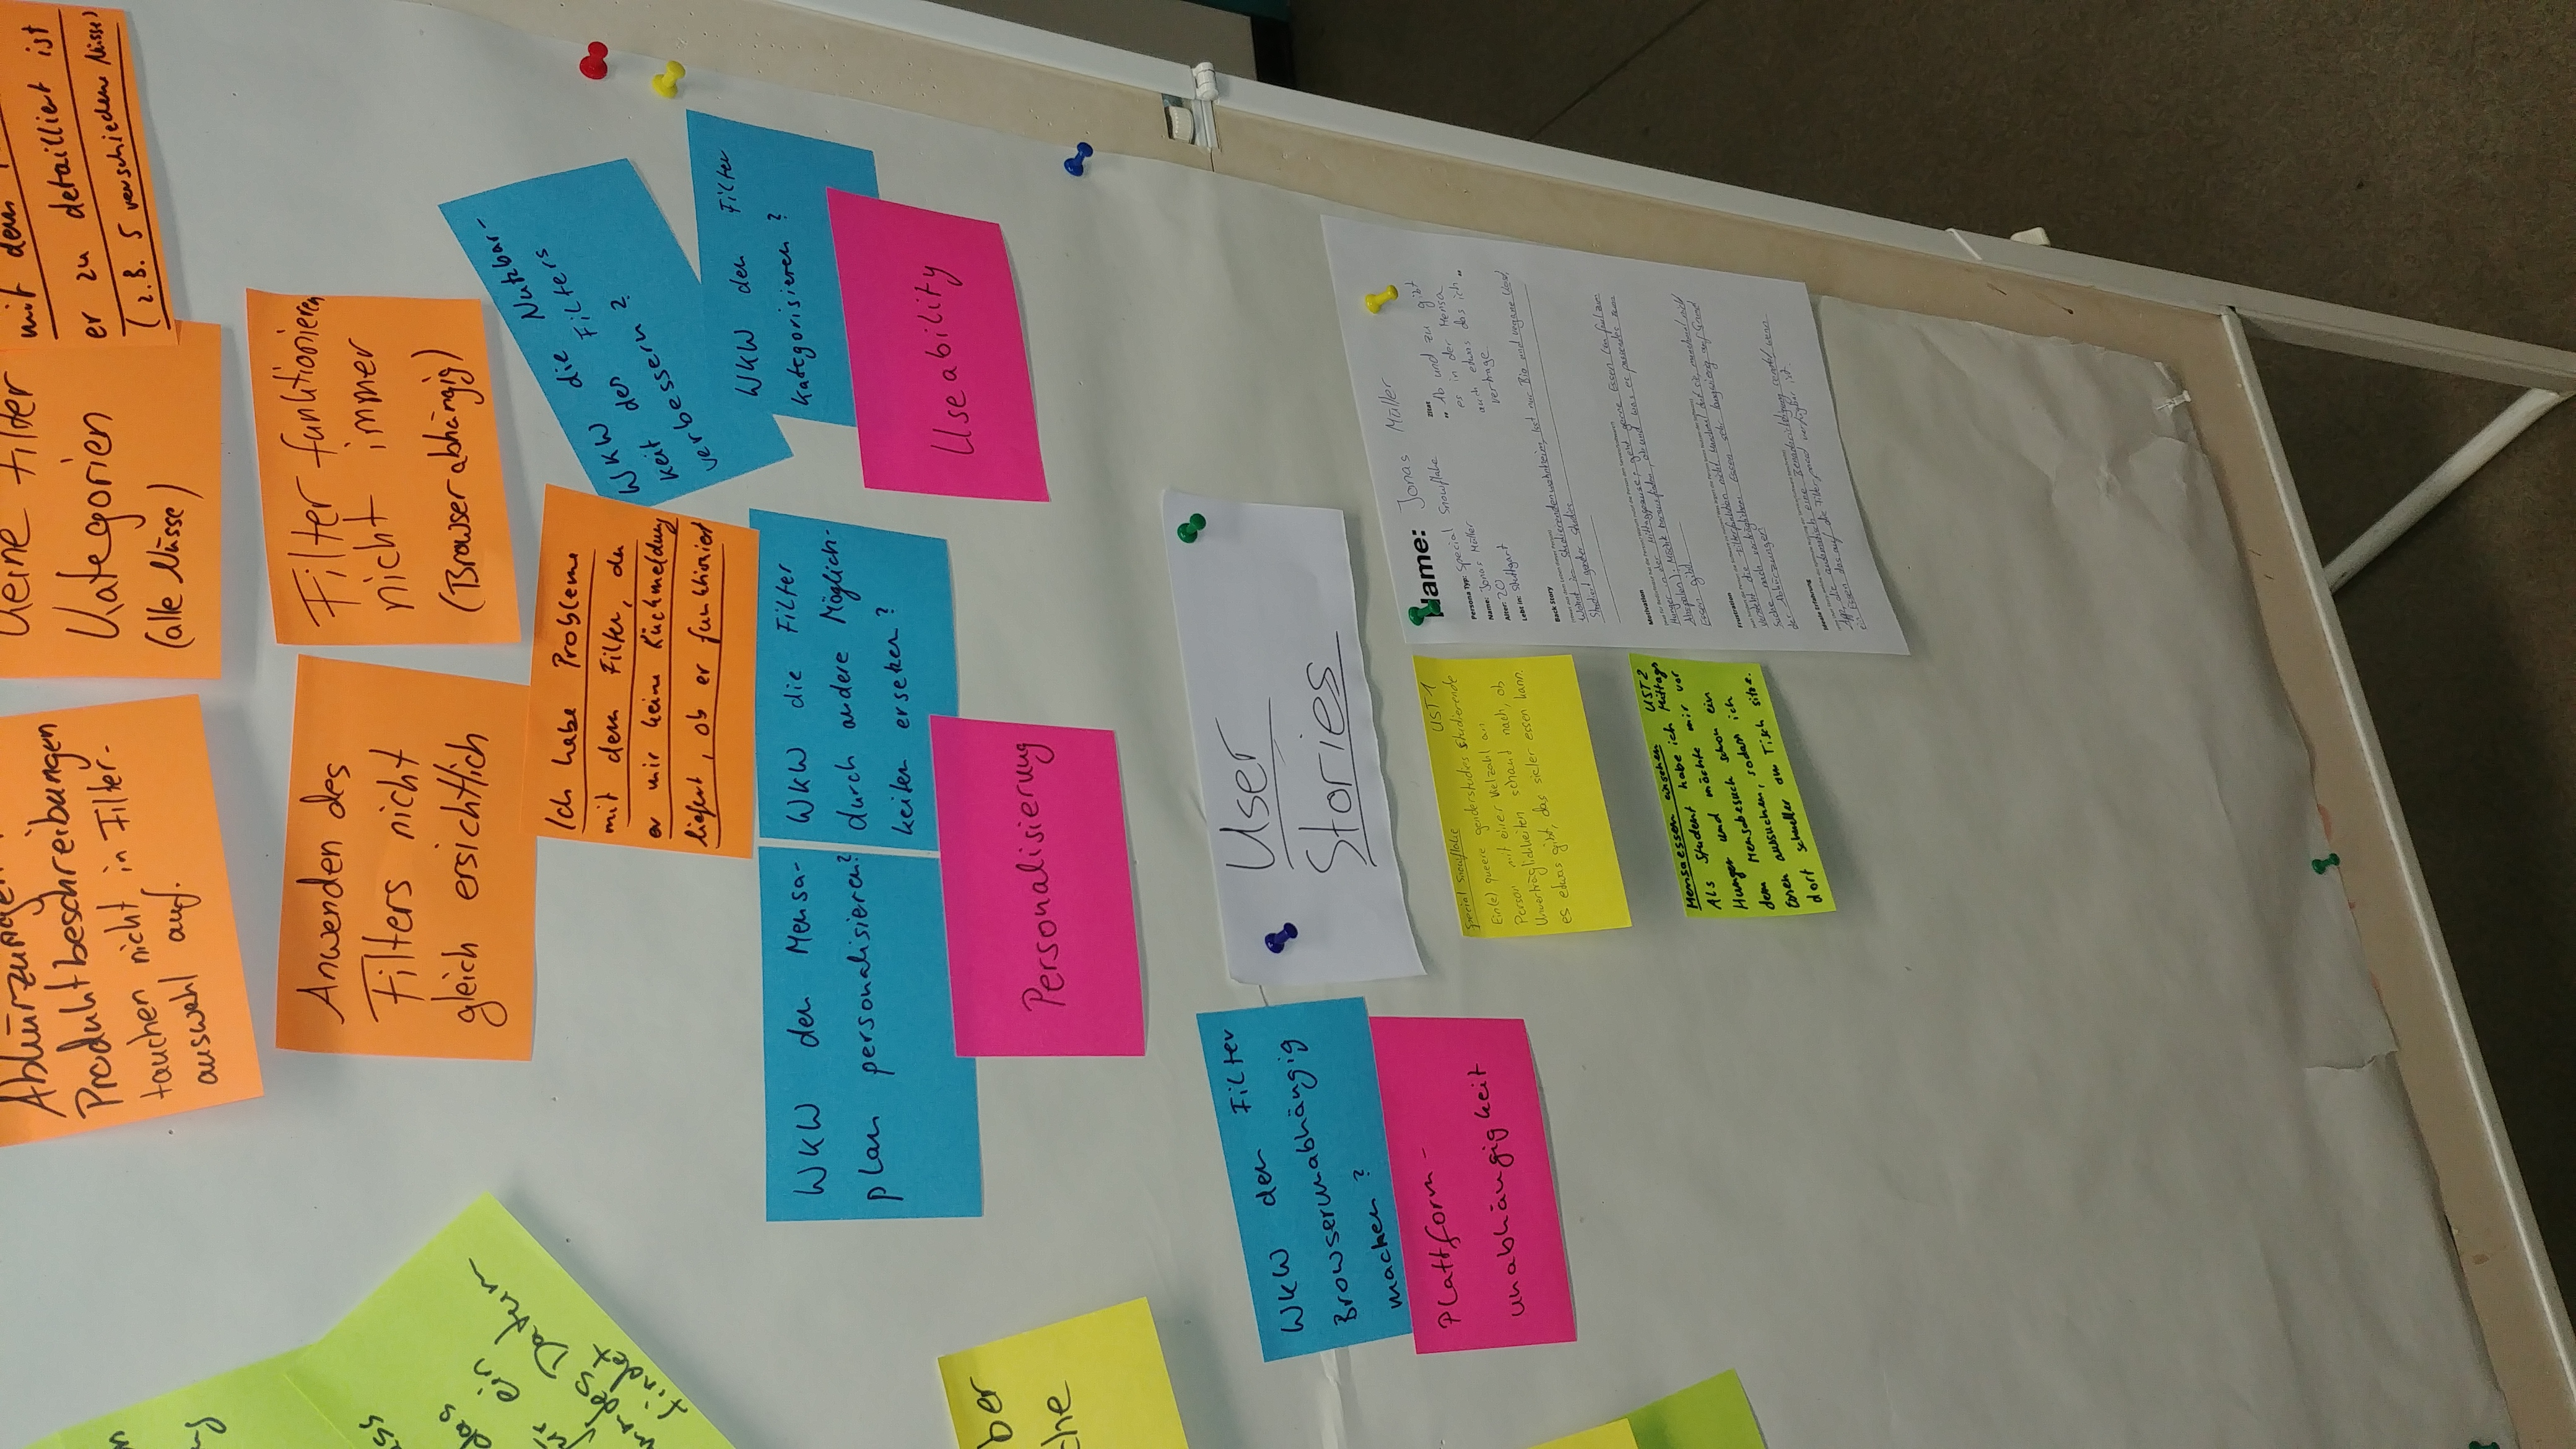 Abkürzungen
Produktbeschreibungen
tauchen nicht in Filter-
auswahl auf.
Keine Filter
Kategorien
(alle Nüsse)
mit dem
er zu detailliert ist
(z.B. 5 verschiedene Nüsse)
Anwenden des
Filters nicht
gleich ersichtlich
Filter funktionieren
nicht immer
(Browser abhängig)
das
für ein
Datum
findet
Ich habe Probleme
mit dem Filter, da
er mir keine Rückmeldung
liefert, ob er funktioniert
WKW die Nutzbar-
keit des Filters
verbessern?
WKW den Filter
kategorisieren?
WKW den Mensa-
plan personalisieren?
WKW die Filter
durch andere Möglich-
keiten ersetzen?
Useability
Personalisierung
ber
che
WKW den Filter
Browserunabhängig
machen?
Plattform-
unabhängigkeit
User
Stories
UST1
Special Snowflake
Ein(e) queere genderstudies Studierende
Person mit einer Vielzahl an
Unverträglichkeiten schaut nach, ob
es etwas gibt, das sie/er essen kann.
UST2
Mensaessen einsehen
Als Student habe ich Mittags
Hunger und möchte mir vor
dem Mensabesuch schon ein
Essen aussuchen, sodass ich
dort schneller am Tisch sitze.
Name: Jonas Müller
Persona Typ: Special Snowflake
Name: Jonas Müller
Alter: 20
Lebt in: Stuttgart
Zitat
„Ab und zu gibt
es in der Mensa
auch etwas das ich
vertrage“
Back Story
Wohnt im Studierendenwohnheim, isst nur Bio und vegane
Studiert gender Studies
Motivation
Hunger in der Mittagspause, geht gerne Essen
Möchte herausfinden, ob und was es passendes zum
Essen gibt
Frustration
versteht die Filterfunktion nicht
Suche nach verträglichem Essen sehr langwierig auf Grund
der Abkürzungen
Ideale Erfahrung
App, die automatisch eine Benachrichtigung sendet, wenn
ein Essen das auf die Filter passt verfügbar ist.